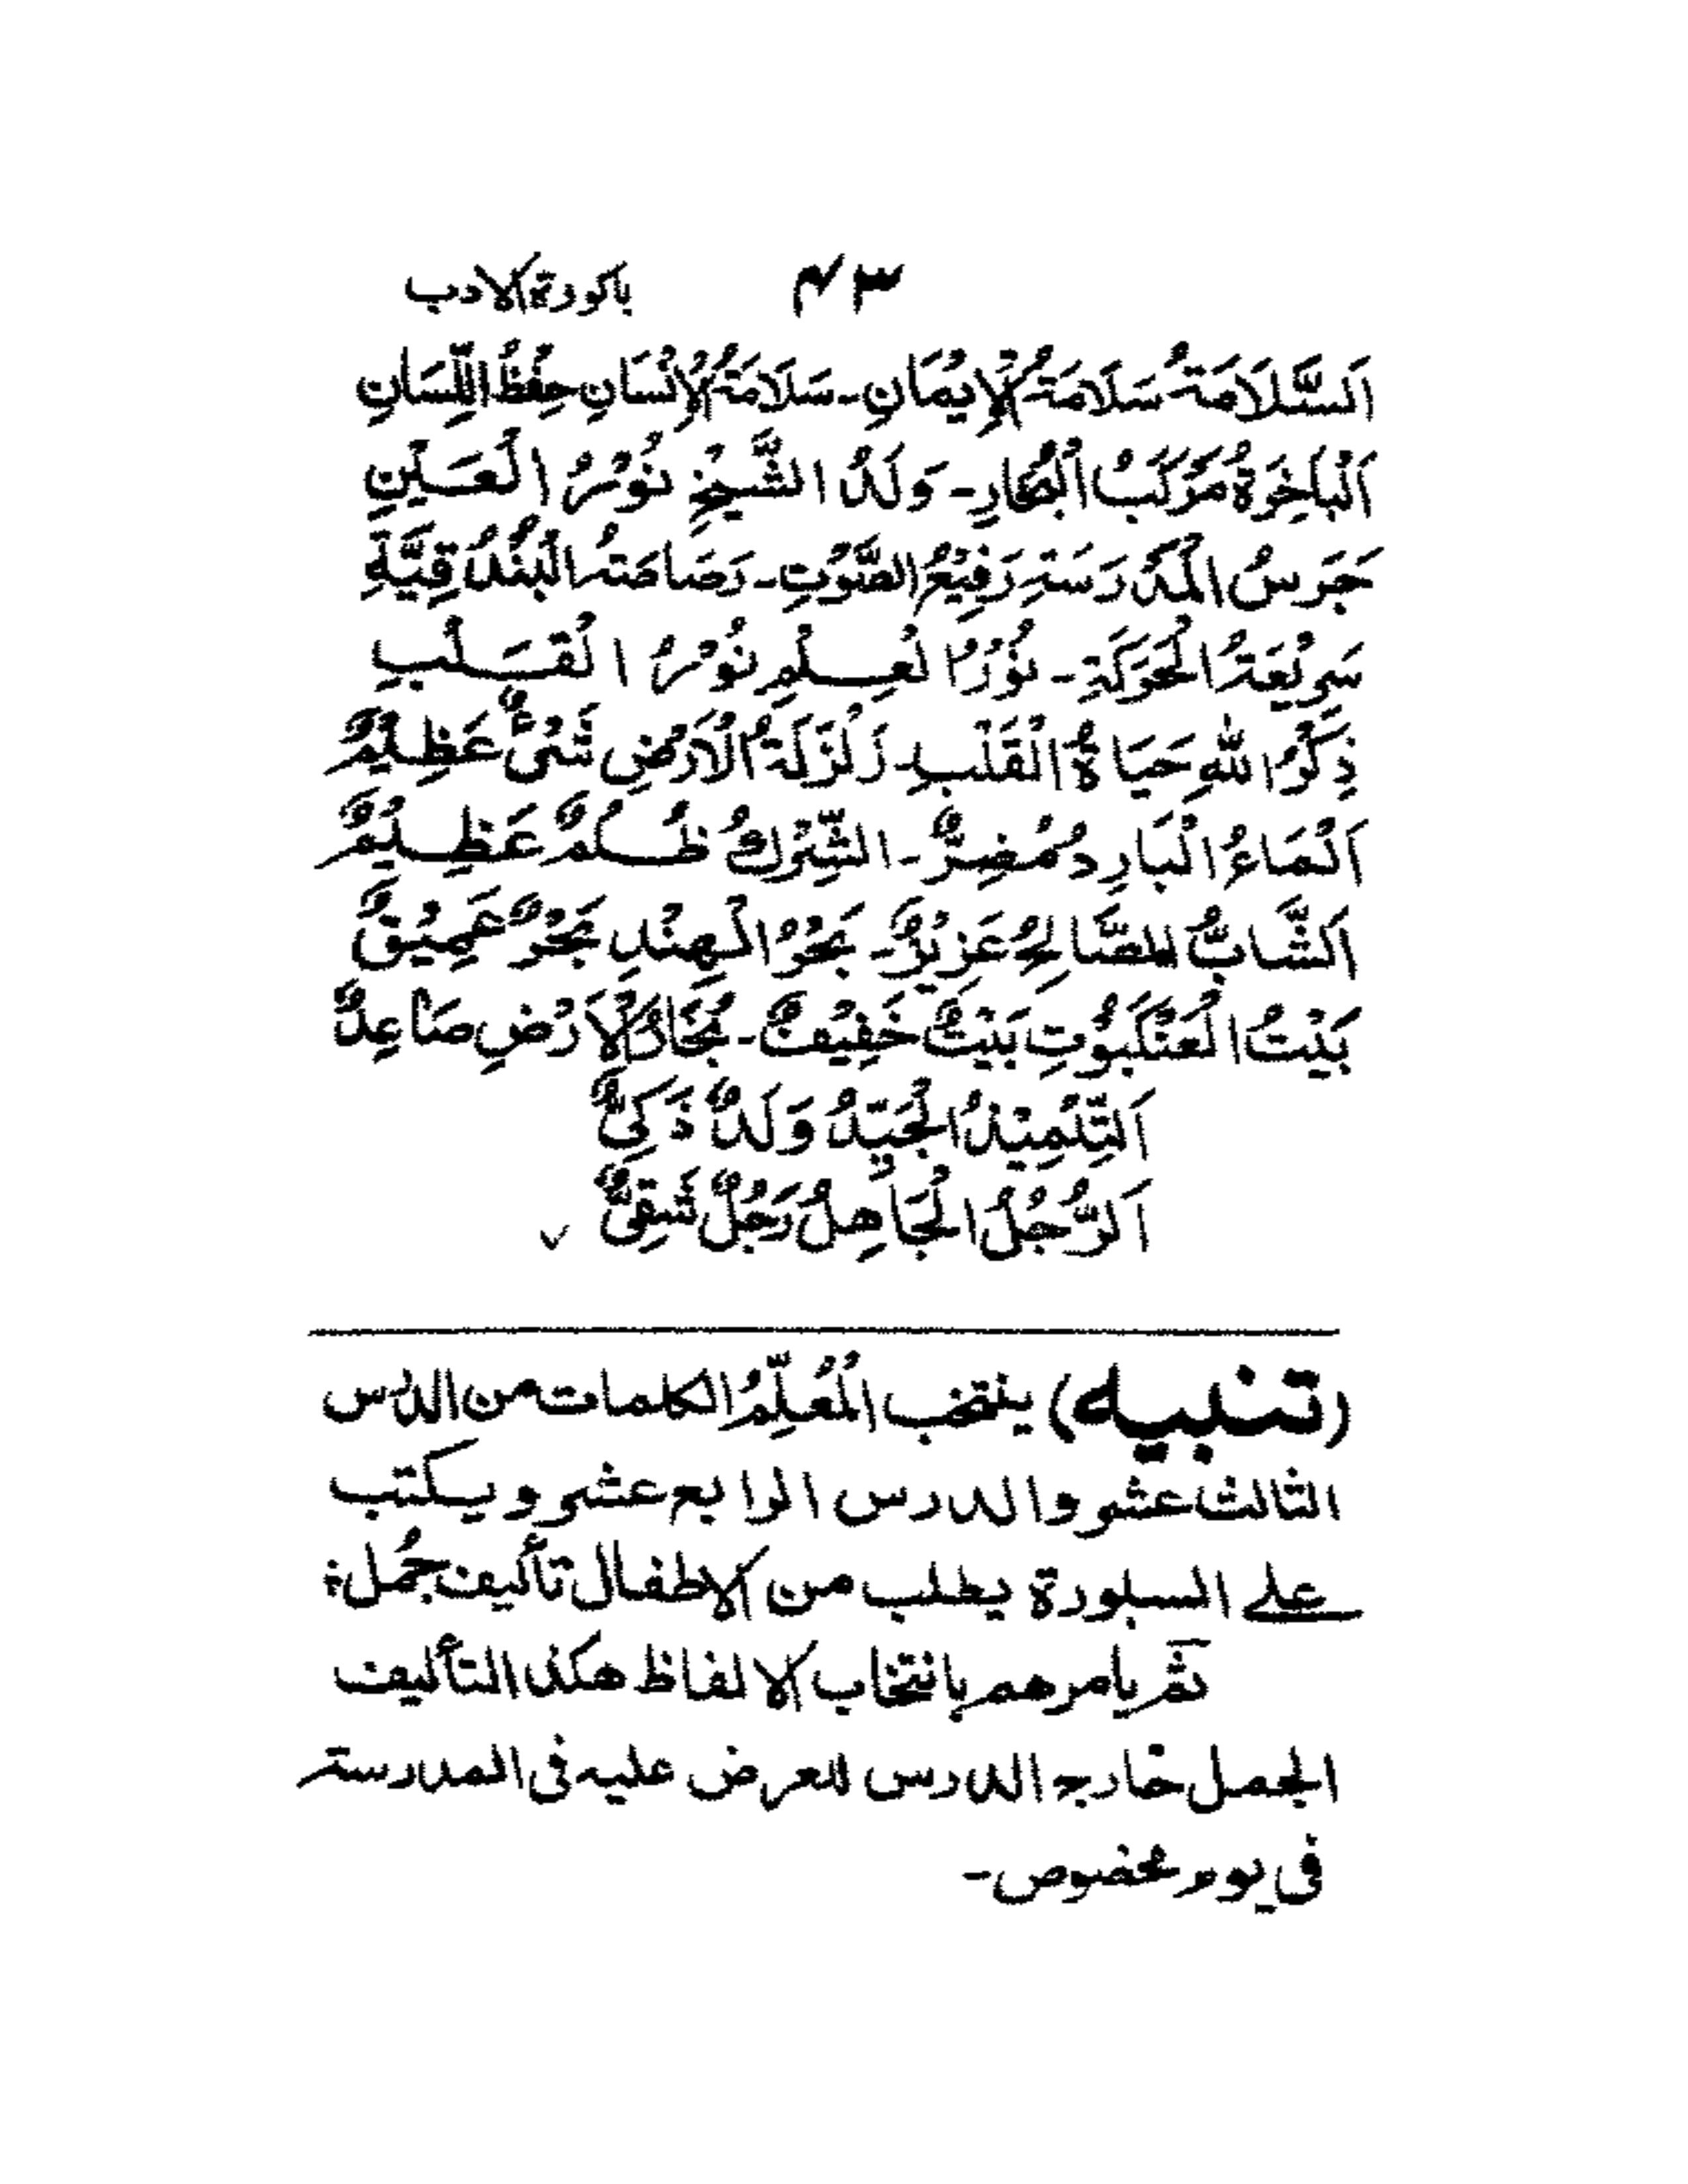 باكورة الادب ٤٣
اَلسَّلَامَةُ سَلَامَةُ الْاِيْمَانِ ـ سَلَامَةُ الْاِنْسَانِ حِفْظُ اللِّسَانِ
اَلْبَاخِرَةُ مَرْكَبُ الْبُخَارِ ـ وَلَدُ الشَّيْخِ نُوْرُ الْعَيْنِ
جَرَسُ الْمَدْرَسَةِ رَفِيْعُ الصَّوْتِ ـ رَصَاصَةُ الْبُنْدُقِيَّةِ
سَرِيْعَةُ الْحَرَكَةِ ـ نُوْرُ الْعِلْمِ نُوْرُ الْقَلْبِ
ذِكْرُ اللهِ حَيَاةُ الْقَلْبِ ـ زَلْزَلَةُ الْاَرْضِ شَئْیٌ عَظِيْمٌ
اَلْمَاءُ الْبَارِدُ مُضِرٌّ ـ الشِّرْكُ ظُلْمٌ عَظِيْمٌ
اَلشَّابُّ الصَّالِحُ عَزِيْزٌ ـ بَحْرُ الْهِنْدِ بَحْرٌ عَمِيْقٌ
بَيْتُ الْعَنْكَبُوْتِ بَيْتٌ خَفِيْفٌ ـ بُخَارُ الْاَرْضِ صَاعِدٌ
اَلتِّلْمِيْذُ الْجَيِّدُ وَلَدٌ ذَكِیٌّ
اَلرَّجُلُ الْجَاهِلُ رَجُلٌ شَقِیٌّ
(تنبيه) ينتخب الْمُعَلِّمُ الكلمات من الدرس
الثالث عشر والدرس الرابع عشر ويكتب
على السبورة يطلب من الاطفال تأليف جُمل:
ثم يامرهم بانتخاب الالفاظ هكذا التأليف
الجمل خارج الدرس للعرض عليه فى المدرسة
فى يوم مخصوص ـ